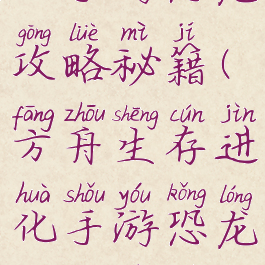 gōng lüè mì jí
攻略秘籍(
fāng zhōu shēng cún jìn
方舟生存进
huà shǒu yóu kǒng lóng
化手游恐龙